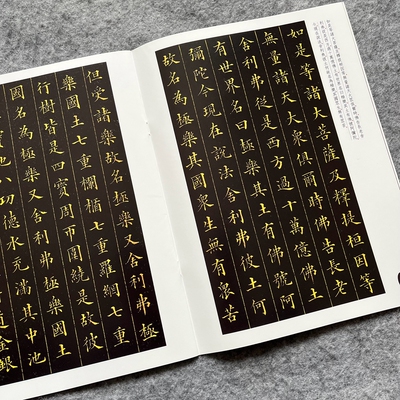 如是等諸大菩薩及釋提桓因等
無量諸天大衆俱爾時佛告長老
舍利弗從是西方過十萬億佛土
有世界名曰極樂其土有佛號阿
彌陀今現在説法舍利弗彼土何
故名為極樂其國衆生無有衆苦
但受諸樂故名極樂又舍利弗極
樂國土七重欄楯七重羅網七重
行樹皆是四寳周帀圍繞是故彼
國名為極樂又舍利弗極樂國土
寳池八功德水充滿其中池
道金銀